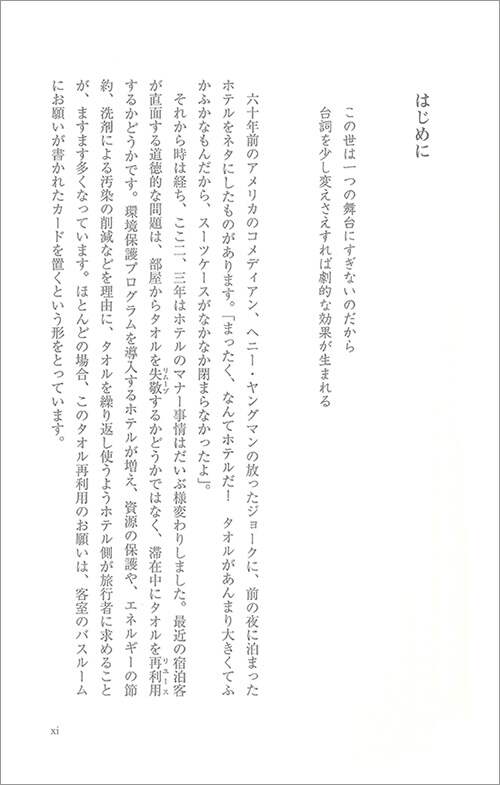 はじめに
この世は一つの舞台にすぎないのだから
台詞を少し変えさえすれば劇的な効果が生まれる
六十年前のアメリカのコメディアン、ヘニー・ヤングマンの放ったジョークに、前の夜に泊まった
ホテルをネタにしたものがあります。「まったく、なんてホテルだ！　タオルがあんまり大きくてふ
かふかなもんだから、スーツケースがなかなか閉まらなかったよ」。
それから時は経ち、ここ二、三年はホテルのマナー事情はだいぶ様変わりしました。最近の宿泊客
が直面する道徳的な問題は、部屋からタオルを失敬するかどうかではなく、滞在中にタオルを再利用
リムーブ
リユース
するかどうかです。環境保護プログラムを導入するホテルが増え、資源の保護や、エネルギーの節
約、洗剤による汚染の削減などを理由に、タオルを繰り返し使うようホテル側が旅行者に求めること
が、ますます多くなっています。ほとんどの場合、このタオル再利用のお願いは、客室のバスルーム
にお願いが書かれたカードを置くという形をとっています。
xi